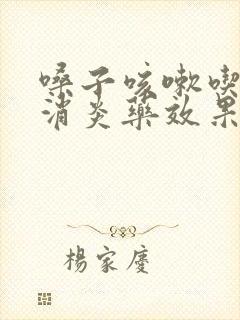 嗓子咳嗽喫
消炎藥效果
楊家慶